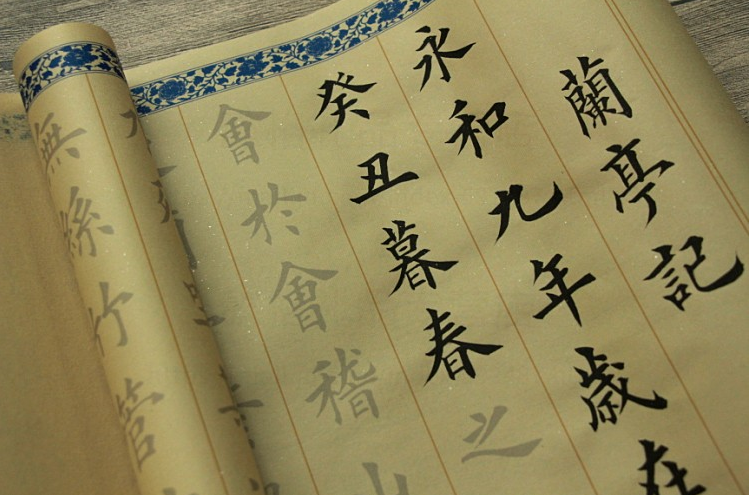 蘭亭記
永和九年歲在
癸丑暮春之
會於會稽山
無絲竹管